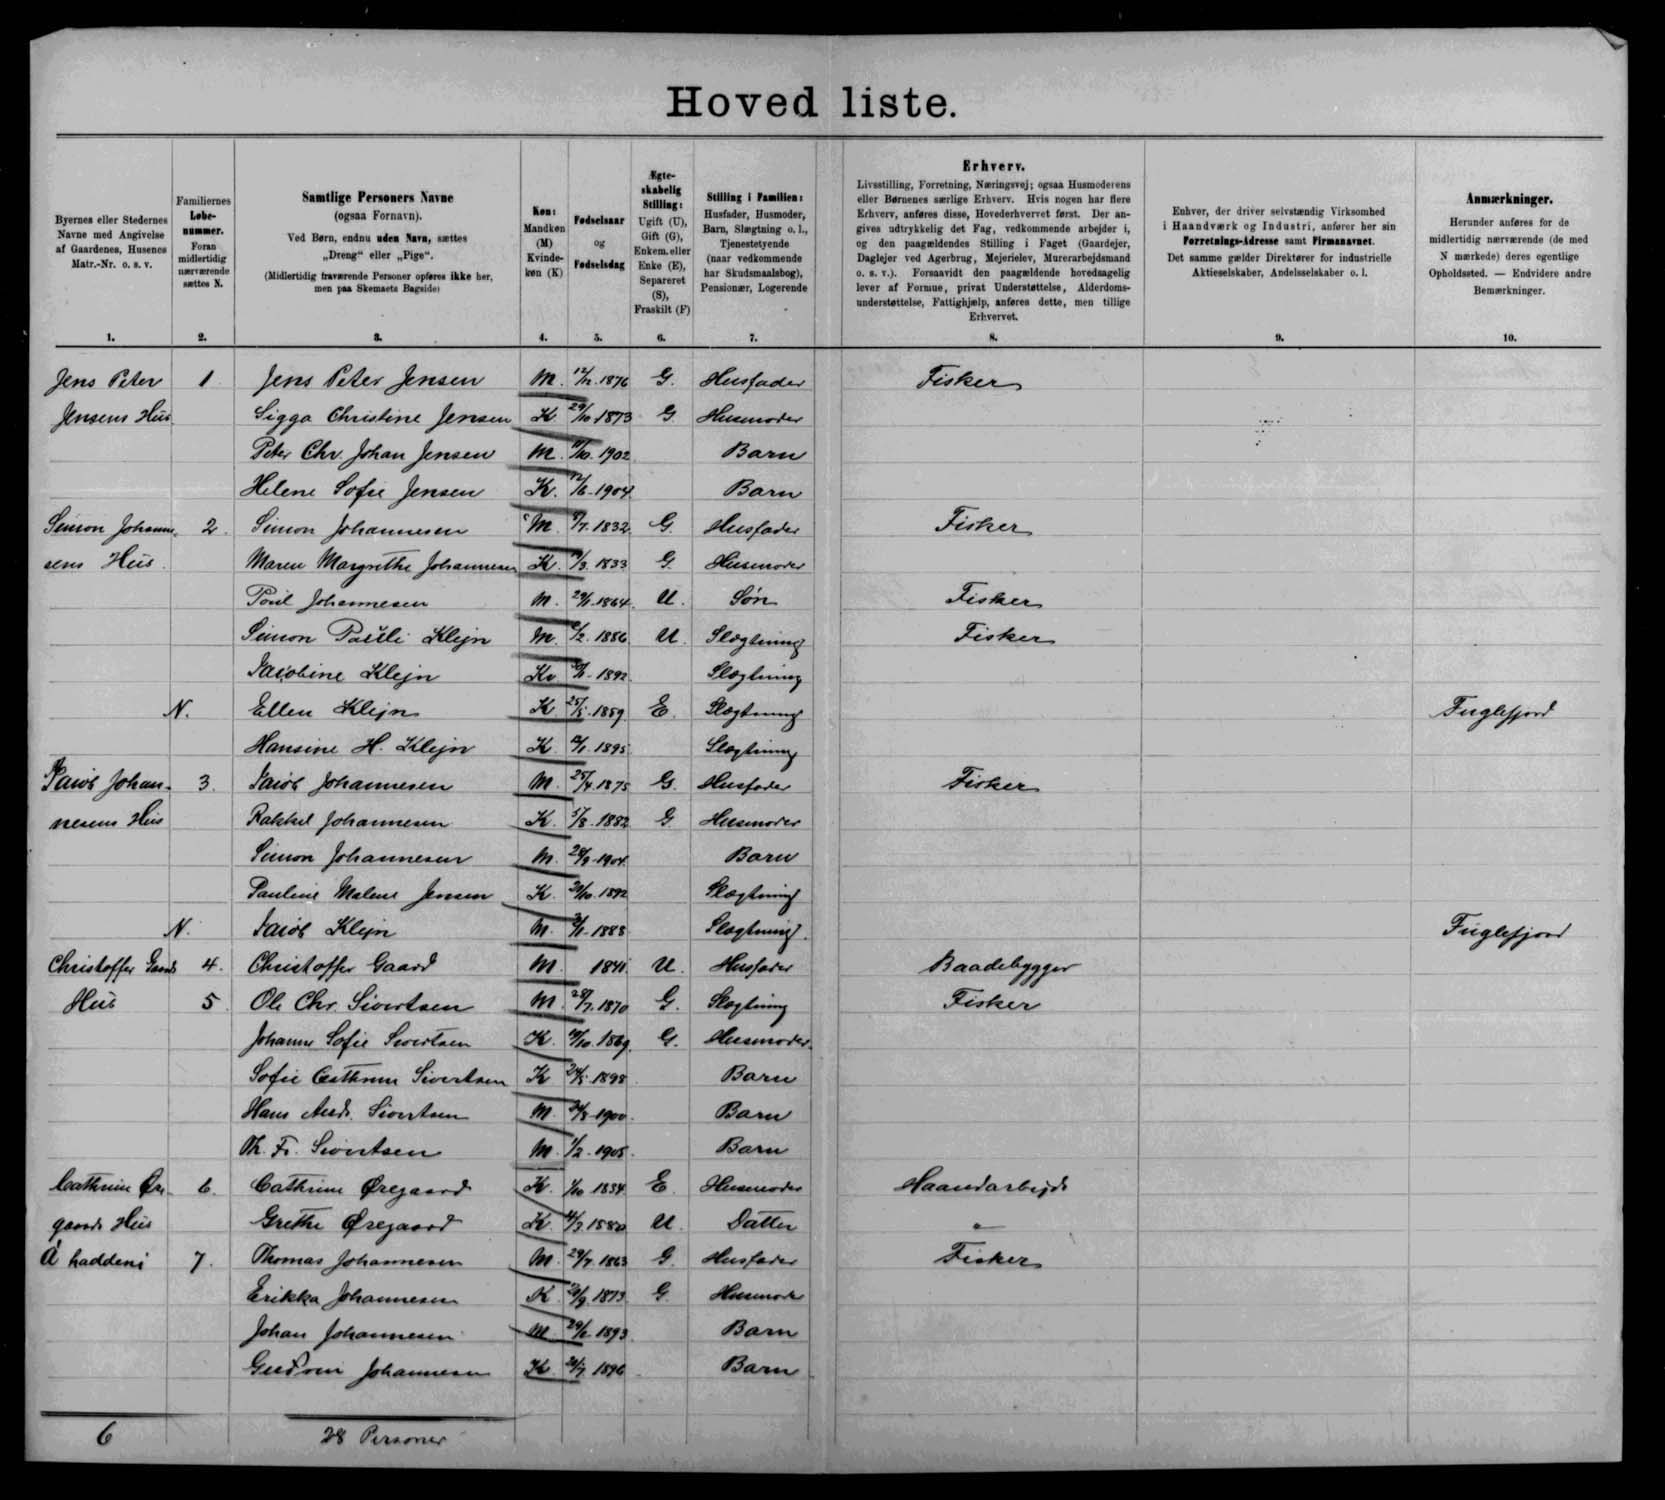 Hoved liste.
Byernes eller Stedernes
Navne med Angivelse
af Gaardenes, Husenes
Matr.-Nr. o. s. v.
1.
Familiernes
Løbe-
nummer.
Foran
midlertidig
nærværende
sættes N.
2.
Samtlige Personers Navne
(ogsaa Fornavn).
Ved Børn, endnu uden Navn, sættes
„Dreng“ eller „Pige“.
(Midlertidig fraværende Personer opføres ikke her,
men paa Skemaets Bagside)
3.
Køn:
Mandkøn
(M)
Kvinde-
køn (K)
4.
Fødselsaar
og
Fødselsdag
5.
Ægte-
skabelig
Stilling:
Ugift (U),
Gift (G),
Enkem. eller
Enke (E),
Separeret
(S),
Fraskilt (F)
6.
Stilling i Familien:
Husfader, Husmoder,
Barn, Slægtning o. l.,
Tjenestetyende
(naar vedkommende
har Skudsmaalsbog),
Pensionær, Logerende
7.
Erhverv.
Livsstilling, Forretning, Næringsvej; ogsaa Husmoderens
eller Børnenes særlige Erhverv. Hvis nogen har flere
Erhverv, anføres disse, Hovederhvervet først. Der an-
gives udtrykkelig det Fag, vedkommende arbejder i,
og den paagældendes Stilling i Faget (Gaardejer,
Daglejer ved Agerbrug, Mejerielev, Murerarbejdsmand
o. s. v.). Forsaavidt den paagældende hovedsagelig
lever af Formue, privat Understøttelse, Alderdoms-
understøttelse, Fattighjælp, anføres dette, men tillige
Erhvervet.
8.
Enhver, der driver selvstændig Virksomhed
i Haandværk og Industri, anfører her sin
Forretnings-Adresse samt Firmanavnet.
Det samme gælder Direktører for industrielle
Aktieselskaber, Andelsselskaber o. l.
9.
Anmærkninger.
Herunder anføres for de
midlertidig nærværende (de med
N mærkede) deres egentlige
Opholdssted. — Endvidere andre
Bemærkninger.
10.
Jens Peter 1 Jens Peter Jensen M. 1876 G. Husfader Fisker
Jensens Hus Sigga Christine Jensen K. 29/10 1873 G. Husmoder
Peter Chr. Johan Jensen M. 1902 Barn
Helene Sofie Jensen K. 12/6 1904 Barn
Simon Johanne- 2. Simon Johannesen M. 1832 G. Husfader Fisker
sens Hus. Maren Margrethe Johannesen K. 1833 G. Husmoder
Poul Johannesen M. 1864. U. Søn Fisker
Simon Pauli Klejn M. 1886 U. Slægtning Fisker
Jacobine Klejn Kv 1892 Slægtning
N. Ellen Klejn K. 25/5 1859 E. Slægtning Fuglefjord
Hansine H. Klejn K. 1895 Slægtning
Jacob Johan- 3. Jacob Johannesen M. 25/4 1875 G. Husfader Fisker
nesens Hus Rakkel Johannesen K. 1882 G. Husmoder
Simon Johannesen M. 28/9 1904 Barn
Pauline Malene Jensen K. 1892 Slægtning
N. Jacob Klejn M. 1888 Slægtning. Fuglefjord
Christoffer Gaards 4. Christoffer Gaard M. 1841 U. Husfader Baadebygger
Hus 5. Ole Chr. Sivertsen M. 28/7 1870 G. Slægtning Fisker
Johanne Sofie Sivertsen K. 1869. G. Husmoder.
Sofie Cathrine Sivertsen K 24/5 1898 Barn
Hans Andr. Sivertsen M. 1900. Barn
Th. Fr. Sivertsen M. 1/2 1905. Barn
Cathrine Øre- 6. Cathrine Øregaard K. 1/10 1834 E. Husmoder Haandarbejde
gaards Hus Grethe Øregaard K. 1880 U. Datter "
Á haddeni 7. Thomas Johannesen M. 29/7 1863 G. Husfader Fisker
Erikka Johannesen K. 1873 G. Husmoder
Johan Johannesen M. 1893 Barn
Gudrun Johannesen K. 1896 Barn
6 28 Personer